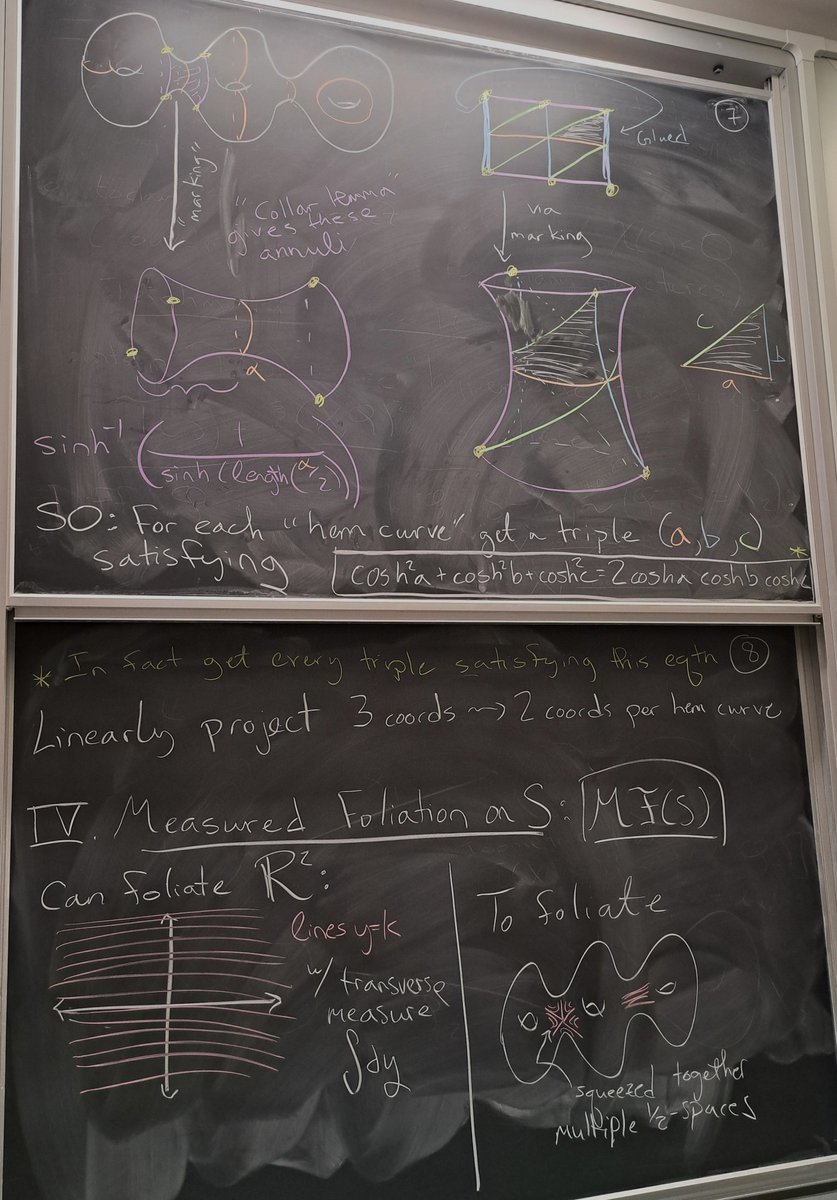 7
Glued
"marking"
"Collar lemma"
gives these
annuli
via
marking
α
c
b
a
sinh⁻¹ ( 1 / sinh(length(α/2) )
SO: For each "hem curve" get a triple (a,b,c) *
satisfying cosh²a + cosh²b + cosh²c = 2 cosha coshb coshc
* In fact get every triple satisfying this eqtn 8
Linearly project 3 coords ⇝ 2 coords per hem curve
IV. Measured Foliation on S: MF(S)
Can foliate ℝ²:
lines y=k
w/ transverse
measure
∫dy
To foliate
squeezed together
multiple ½-spaces